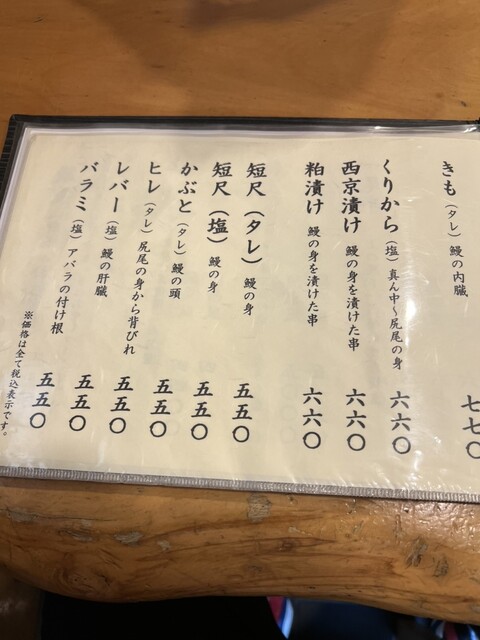 きも（タレ）鰻の内臓 七七〇
くりから（塩）真ん中～尻尾の身 六六〇
西京漬け 鰻の身を漬けた串 六六〇
粕漬け 鰻の身を漬けた串 六六〇
短尺（タレ）鰻の身 五五〇
短尺（塩）鰻の身 五五〇
かぶと（タレ）鰻の頭 五五〇
ヒレ（タレ）尻尾の身から背びれ 五五〇
レバー（塩）鰻の肝臓 五五〇
バラミ（塩）アバラの付け根 五五〇
※価格は全て税込表示です。